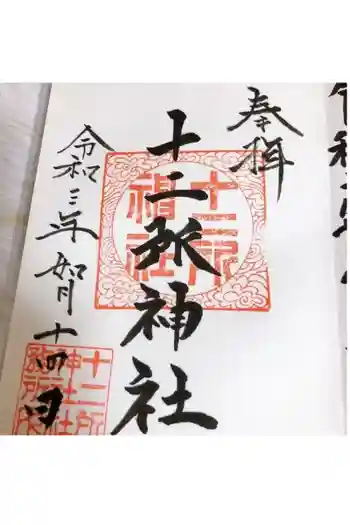 奉拝
十二所神社
十二所神社
令和三年如月十四日
十二所神社務所印